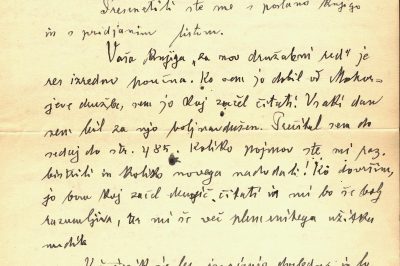 Presenetili ste me s poslano knjigo
in s pridjanim listom.
Vaša knjiga „za nov družabni red" je
res izredno poučna. Ko sem jo dobil od Mohor-
jeve družbe, sem jo kaj začel čitati. Vsaki dan
sem bil za njo bolj navdušen. Prečital sem do
sedaj do str. 485. Koliko pojmov ste mi raz-
bistrili in koliko novega nadodali! Ko dovršim,
jo bom kaj začel drugič čitati in mi bo še bolj
razumljiva, ter mi še več plemenitega užitka
nudila